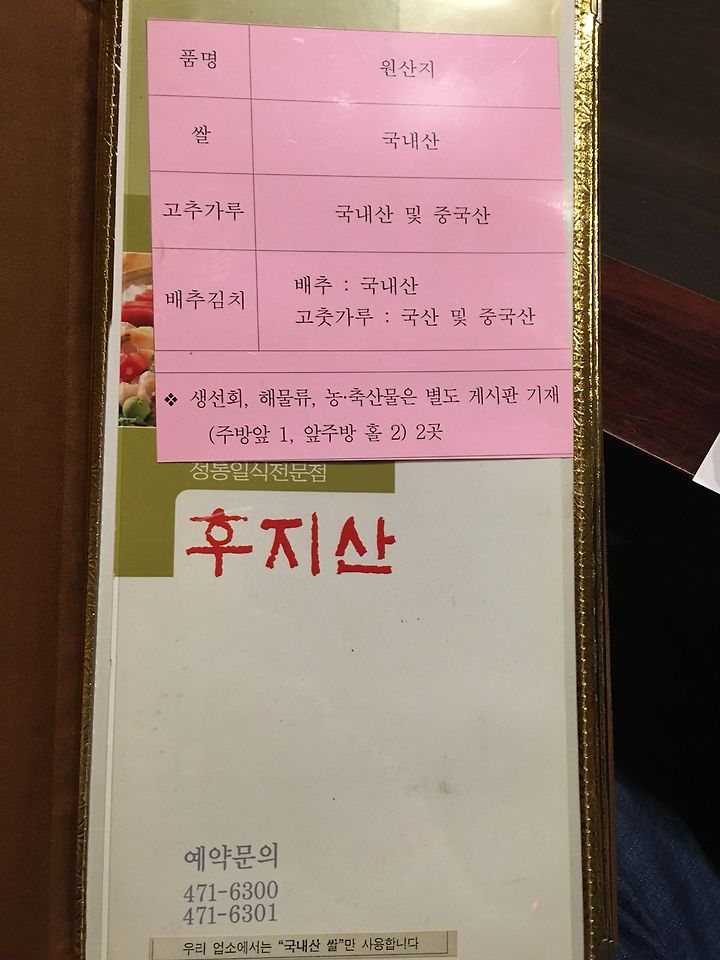 품명 원산지
쌀 국내산
고추가루 국내산 및 중국산
배추김치
배추 : 국내산
고춧가루 : 국산 및 중국산
❖ 생선회, 해물류, 농·축산물은 별도 게시판 기재
(주방앞 1, 앞주방 홀 2) 2곳
정통일식전문점
후지산
예약문의
471-6300
471-6301
우리 업소에서는 "국내산 쌀"만 사용합니다